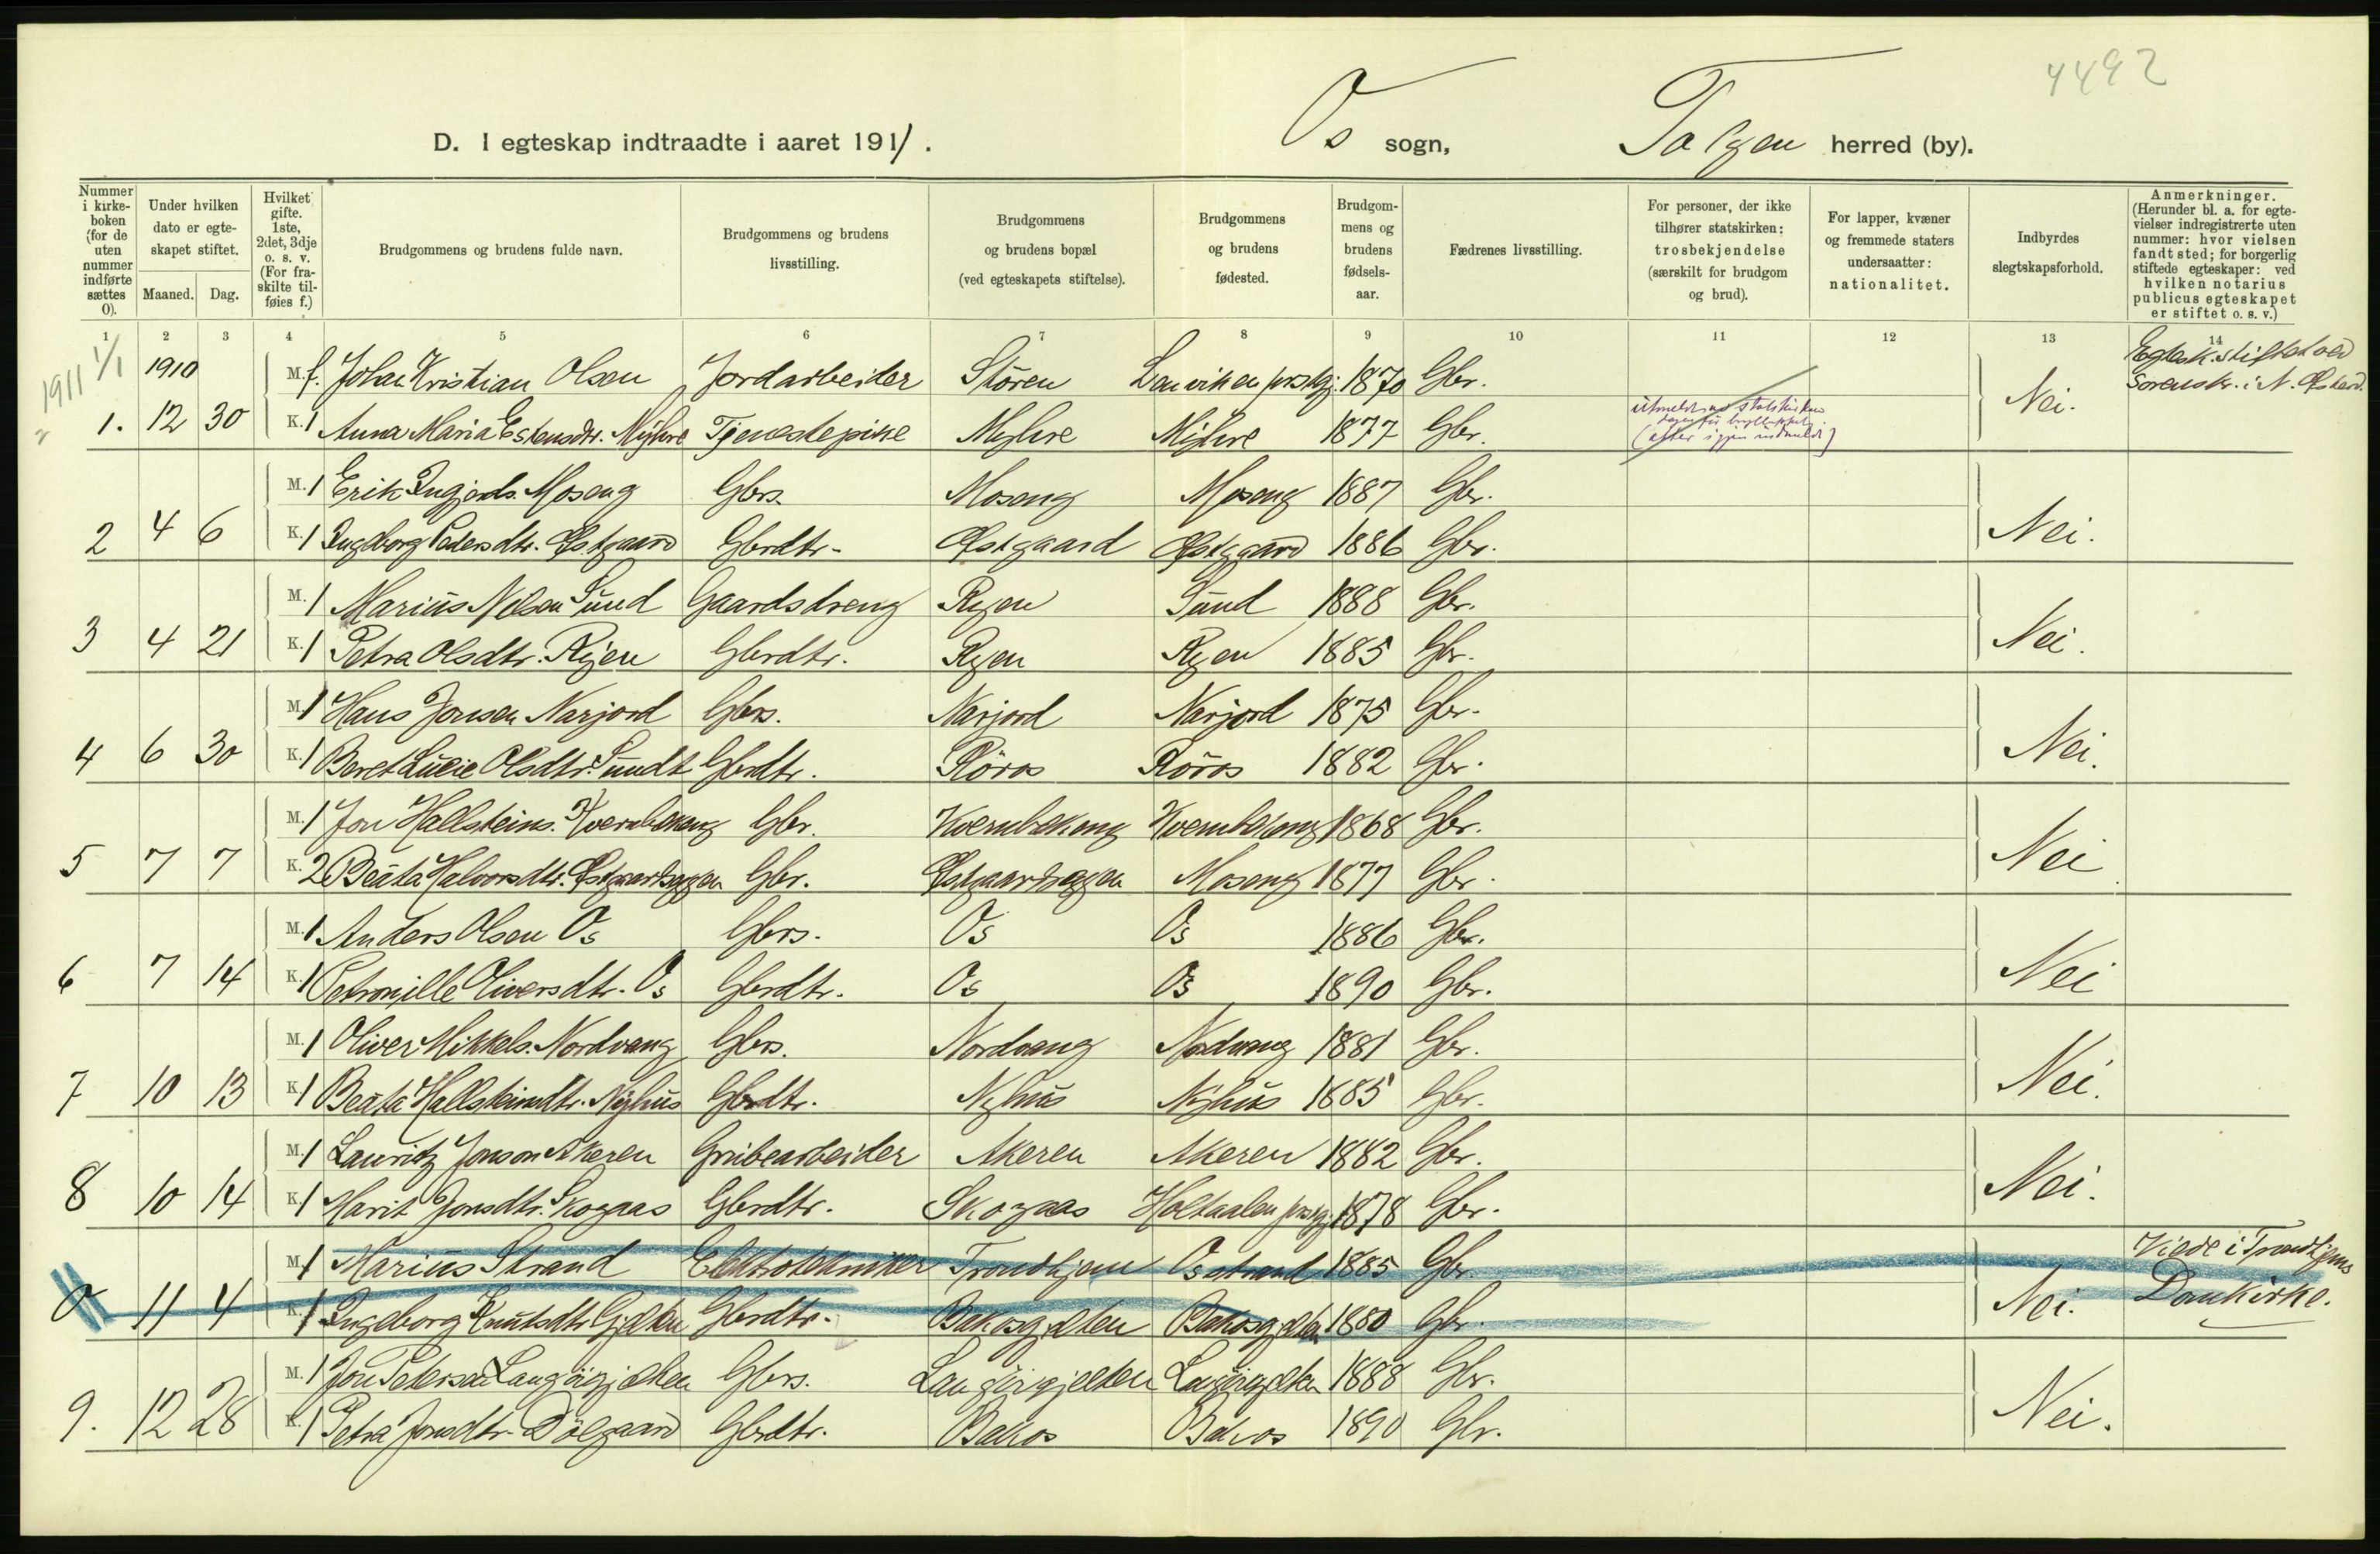 4492
D. I egteskap indtraadte i aaret 1911. Os sogn, Tolgen herred (by).
Nummer i kirkeboken (for de uten nummer indførte sættes 0).
Under hvilken dato er egteskapet stiftet.
Maaned. Dag.
Hvilket gifte. 1ste, 2det, 3dje o. s. v. (For fraskilte tilføies f.)
Brudgommens og brudens fulde navn.
Brudgommens og brudens livsstilling.
Brudgommens og brudens bopæl (ved egteskapets stiftelse).
Brudgommens og brudens fødested.
Brudgommens og brudens fødselsaar.
Fædrenes livsstilling.
For personer, der ikke tilhører statskirken: trosbekjendelse (særskilt for brudgom og brud).
For lapper, kvæner og fremmede staters undersaatter: nationalitet.
Indbyrdes slegtskapsforhold.
Anmerkninger. (Herunder bl. a. for egtevielser indregistrerte uten nummer: hvor vielsen fandt sted; for borgerlig stiftede egteskaper: ved hvilken notarius publicus egteskapet er stiftet o. s. v.)
1 2 3 4 5 6 7 8 9 10 11 12 13 14
1911 1/1 1910 M. f. Johan Kristian Olsen Jordarbeider Stören 1870 Gbr. Egtesk. stiftet ved
Sorenskr. i N. Østerd.
1. 12 30 K. 1 Anna Maria Estensdtr. Myhre Tjenestepike Myhre Myhre 1877 Gbr. Nei.
utmeldt av statskirken
(efter igjen indmeldt)
M. 1 Erik Ingjerds. Moseng Gbrs. Moseng Moseng 1887 Gbr.
2 4 6 K. 1 Ingeborg Pedersdtr. Østgaard Gbrdtr. Østgaard Østgaard 1886 Gbr. Nei.
M. 1 Marius Nilsen Sund Gaardsdreng Ryen Sund 1888 Gbr.
3 4 21 K. 1 Petra Olsdtr. Ryen Gbrdtr. Ryen Ryen 1885 Gbr. Nei.
M. 1 Hans Jonsen Narjord Gbrs. Narjord Narjord 1875 Gbr.
4 6 30 K. 1 Beret Lucie Olsdtr. Sundt Gbrdtr. Röros Röros 1882 Gbr. Nei.
M. 1 Jon Hallsteins. Kvernbekeng Gbr. Kvernbekeng Kvernbekeng 1868 Gbr.
5 7 7 K. 2 Beata Halvorsdtr. Østgaardseggen Gbr. Østgaardseggen Moseng 1877 Gbr. Nei
M. 1 Anders Olsen Os Gbrs. Os Os 1886 Gbr.
6 7 14 K. 1 Petronille Oliversdtr. Os Gbrdtr. Os Os 1890 Gbr. Nei
M. 1 Oliver Mikkels. Nordvang Gbrs. Nordvang Nordvang 1881 Gbr.
7 10 13 K. 1 Beata Hallsteinsdtr. Nyhus Gbrdtr. Nyhus Nyhus 1885 Gbr. Nei.
M. 1 Lauritz Jonson Akeren Grubearbeider Akeren Akeren 1882 Gbr.
8 10 14 K. 1 Marit Jonsdtr. Skogaas Gbrdtr. Skogaas Holtaalen prstgj. 1878 Gbr. Nei.
M. 1 Marius Strand Elektrotekniker Trondhjem Osstrand 1885 Gbr. Viede i Trondhjems
0 11 4 K. 1 Ingeborg Knutsdtr. Gjelten Gbrdtr. Bakosgjelten Bakosgjelten 1880 Gbr. Nei. Domkirke.
M. 1 Jon Peterson Langöigjelten Gbrs. Langöigjelten Langöigjelten 1888 Gbr.
9. 12 28 K. 1 Petra Jonsdtr. Dölgaard Gbrdtr. Bakos Bakos 1890 Gbr. Nei.